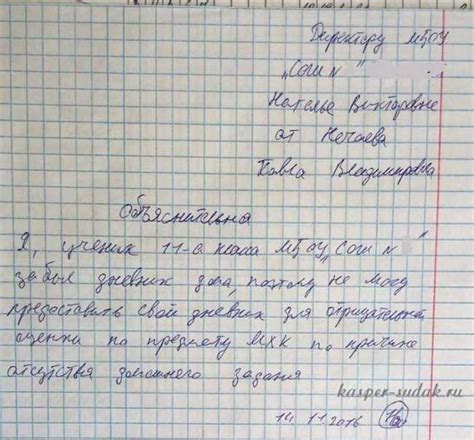 Директору МБОУ
"Сош №
Наталье Викторовне
от Нечаева
Павла Владимировича
Объяснительна
Я, ученик 11-а класса МБОУ "Сош №"
забыл дневник дома, поэтому не могу
предоставить свой дневник для отрицательной
оценки по предмету МХК по причине
отсутствия домашнего задания
kasper-sudak.ru
14.11.2016